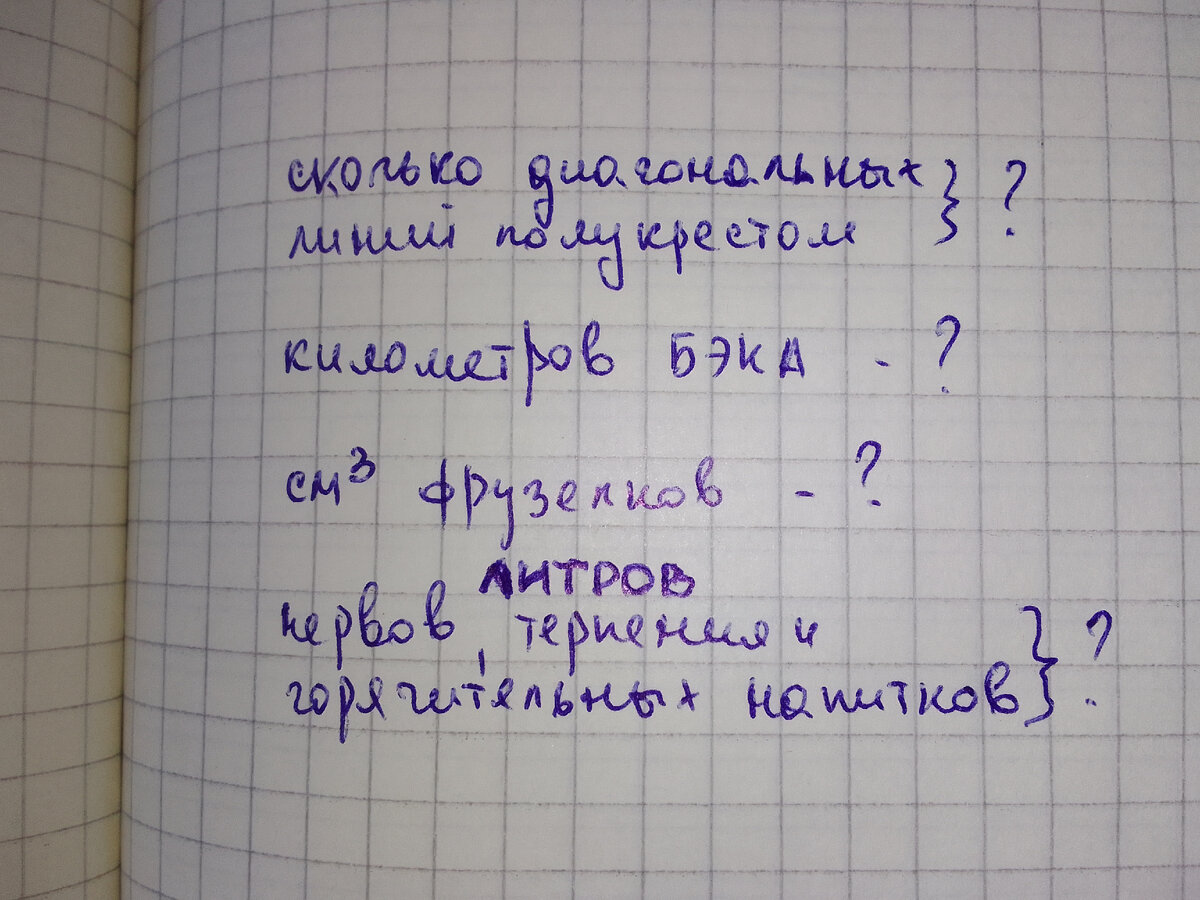 сколько диагональных } ?
линий полукрестом
километров БЭКА - ?
см³ фрузелков - ?
литров
нервов, терпения и } ?
горячительных напитков